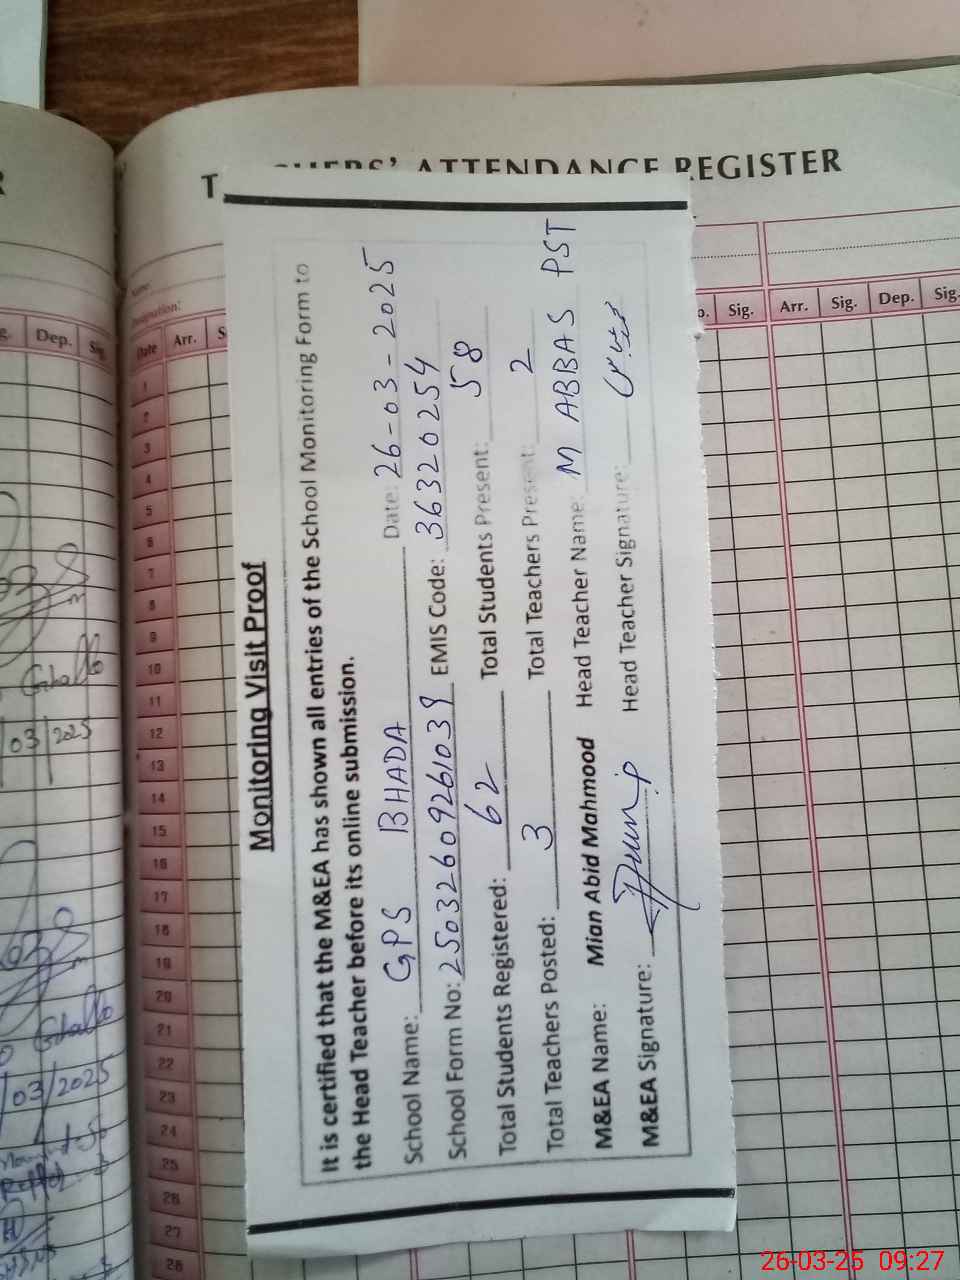 TEACHERS' ATTENDANCE REGISTER
Monitoring Visit Proof
It is certified that the M&EA has shown all entries of the School Monitoring Form to
the Head Teacher before its online submission.
School Name: GPS BHADA Date: 26-03-2025
School Form No: 25032609261039 EMIS Code: 36320254
Total Students Registered: 62 Total Students Present: 58
Total Teachers Posted: 3 Total Teachers Present: 2
M&EA Name: Mian Abid Mahmood Head Teacher Name: M ABBAS PST
M&EA Signature: Head Teacher Signature:
Name
Designation:
Date Arr. Sig. Arr. Sig. Dep. Sig.
1
2
3
4
5
6
7
8
9
10
11
12
13
14
15
16
17
18
19
20
21
22
23
24
25
26
27
28
Dep. Sig.
03/2025
/03/2025
26-03-25 09:27